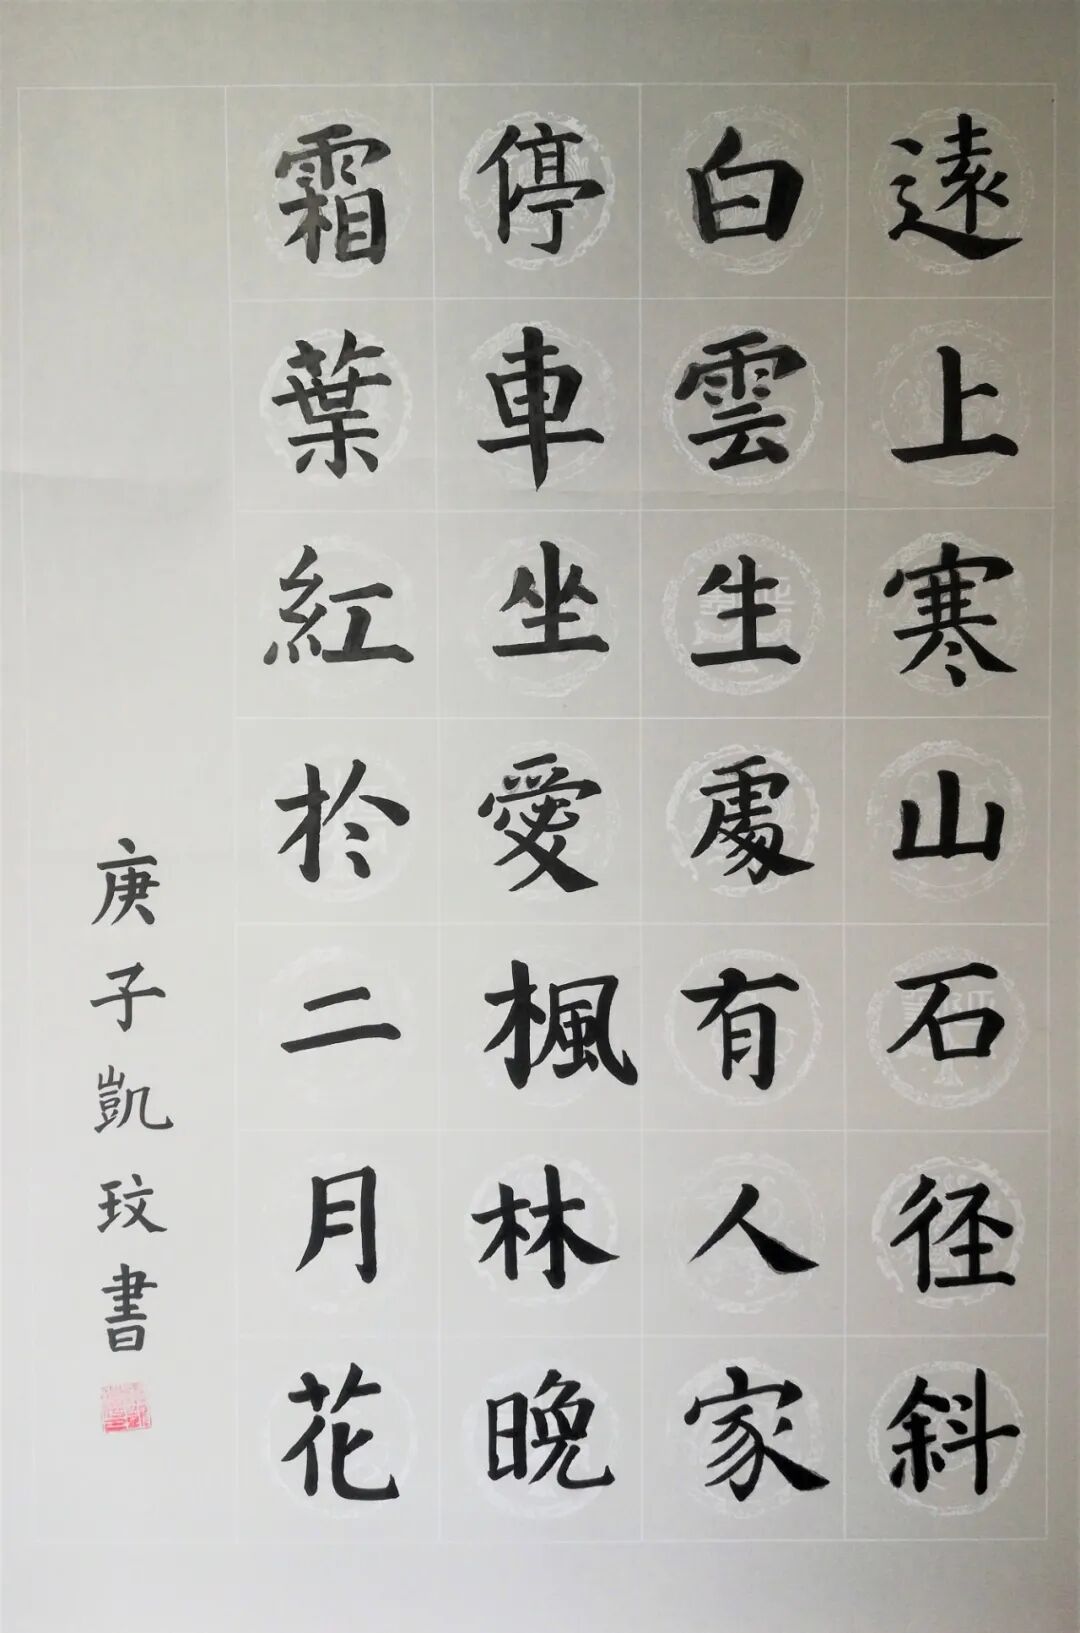 遠上寒山石径斜
白雲生處有人家
停車坐愛楓林晚
霜葉紅於二月花
庚子凱玟書